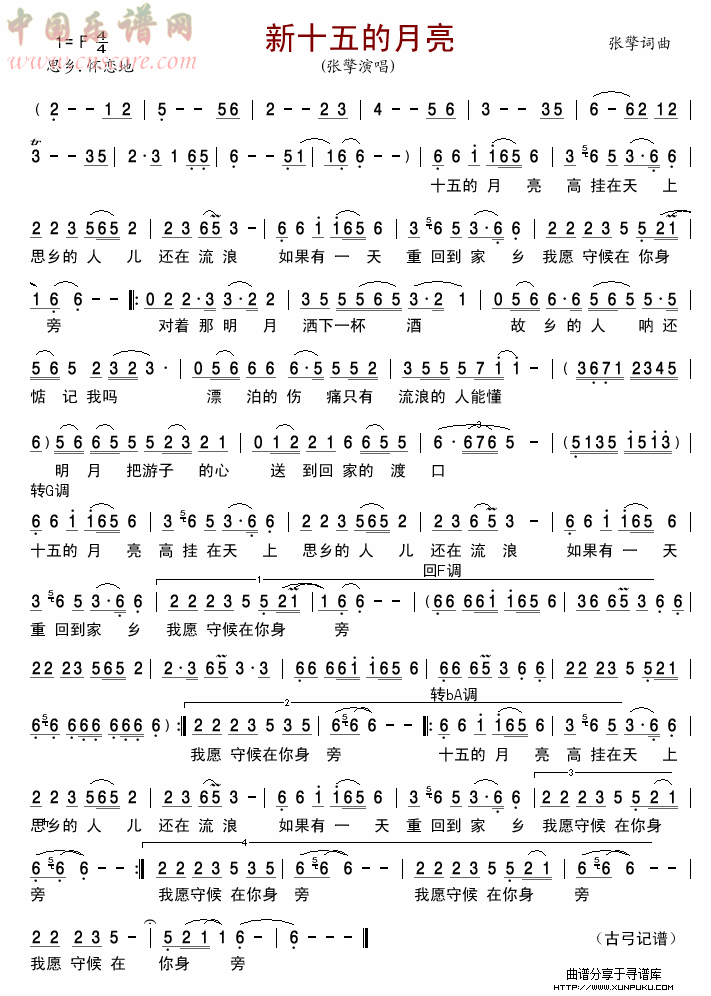 中国乐谱网
www.cnscore.com
1=F 4/4
新十五的月亮
张擎词曲
思乡.怀恋地
(张擎演唱)
( 2 - - 12 | 5 - - 56 | 2 - - 23 | 4 - - 56 | 3 - - 35 | 6 - 62 12 |
3 - - 35 | 2·3 1 65 | 6 - - 51 | 16 6 - - ) | 6 6 1 165 6 | 3 56 5 3·6 6 |
十五的 月 亮 高 挂在天 上
2 2 3 565 2 | 2 3 65 3 - | 6 6 1 165 6 | 3 56 5 3·6 6 | 2 2 2 3 5 5 21 |
思乡的 人 儿 还在 流 浪 如果有 一 天 重 回到 家 乡 我愿 守候在 你身
1 6 6 - - ‖: 0 2 2·3 3·2 2 | 3 5 5 5 6 5 3·2 1 | 0 5 6 6·6 5 6 5 5·5 |
旁 对着 那 明 月 洒下一杯 酒 故 乡 的 人 呐 还
5 6 5 2 3 2 3· | 0 5 6 6 6 6·5 5 5 2 | 3 5 5 5 7 1 1 - | ( 3671 2345 |
惦 记 我吗 漂 泊的 伤 痛只有 流浪的 人能懂
6 ) 5 6 6 5 5 5 5 2 3 2 1 | 0 1 2 2 1 6 6 5 5 | 6·676 5 - | (5135 1513) |
明 月 把游子 的心 送 到回 家的 渡 口
转G调
6 6 1 165 6 | 3 56 5 3·6 6 | 2 2 3 565 2 | 2 3 65 3 - | 6 6 1 165 6 |
十五的 月 亮 高 挂 在天 上 思乡的 人 儿 还在 流 浪 如果有 一 天
1
回F调
3 56 5 3·6 6 | 2 2 2 3 5 5 21 | 1 6 6 - - | (66 661 165 6 | 36 65 3 6 6 |
重 回到家 乡 我愿 守候在你身 旁
22 23 565 2 | 2·3 65 3·3 | 66 661 165 6 | 66 65 36 6 | 22 23 5 521 |
2
转bA调
656 666 666 6 ) :‖ 2 2 2 3 5 3 5 | 6 56 6 - - ‖: 6 6 1 165 6 | 3 56 5 3·6 6 |
我愿 守候在你身 旁 十五的 月 亮 高 挂在天 上
3
2 2 3 565 2 | 2 3 65 3 - | 6 6 1 165 6 | 3 56 5 3·6 6 | 2 2 2 3 5 5 2 1 |
思乡的 人 儿 还在 流 浪 如果有 一 天 重 回到 家 乡 我愿守候 在你身
4
6 56 6 - - :‖ 2 2 2 3 5 3 5 | 6 56 6 - - | 2 2 2 3 5 5 2 1 | 6 56 6 - - |
旁 我愿守候 在你身 旁 我愿守候 在你身 旁
2 2 2 3 5 - | - 5 2 1 1 6 - | 6 - - - ‖
(古弓记谱)
我愿 守候 在 你身 旁
曲谱分享于寻谱库
HTTP://WWW.XUNPUKU.COM